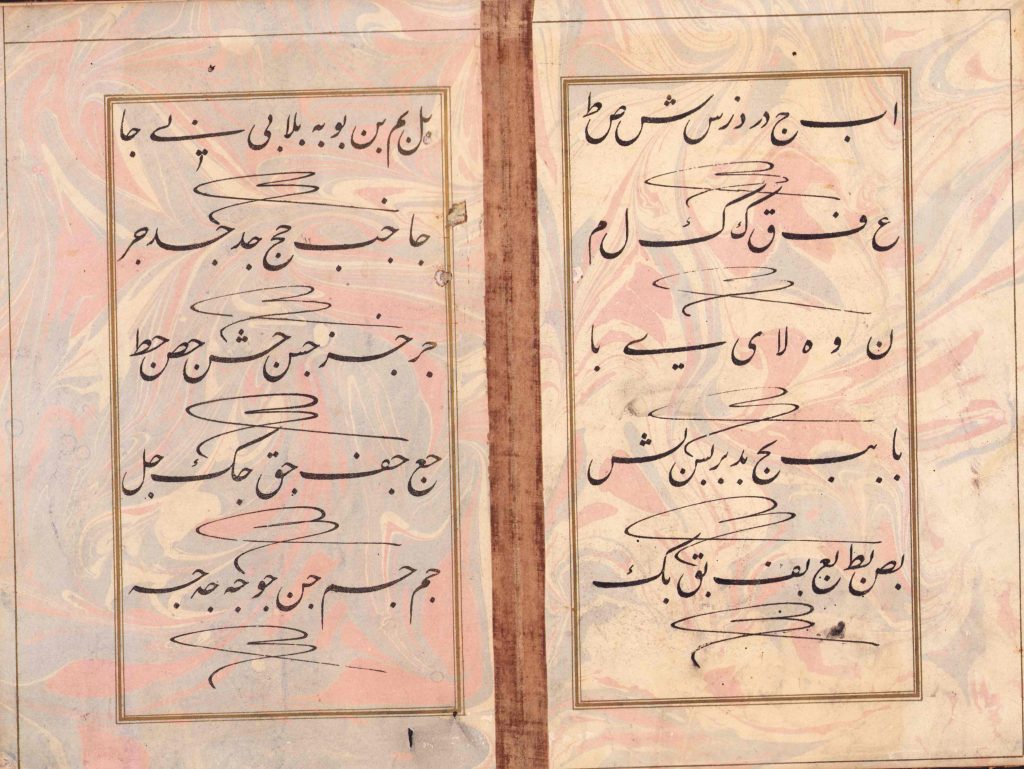 ا ب ج در د زس ش ص ط
ع ف ق ک گ ل م
ن و ه لا ی ے با
با بب بج بد بر بس بش
بص بط بع بف بق بک
بل بم بن بو به بلا بی بے جا
جا جب جج جد جد جر
جر جز جس جش جص جط
جع جف جق جک جل
جم جم جن جو جه جد جه